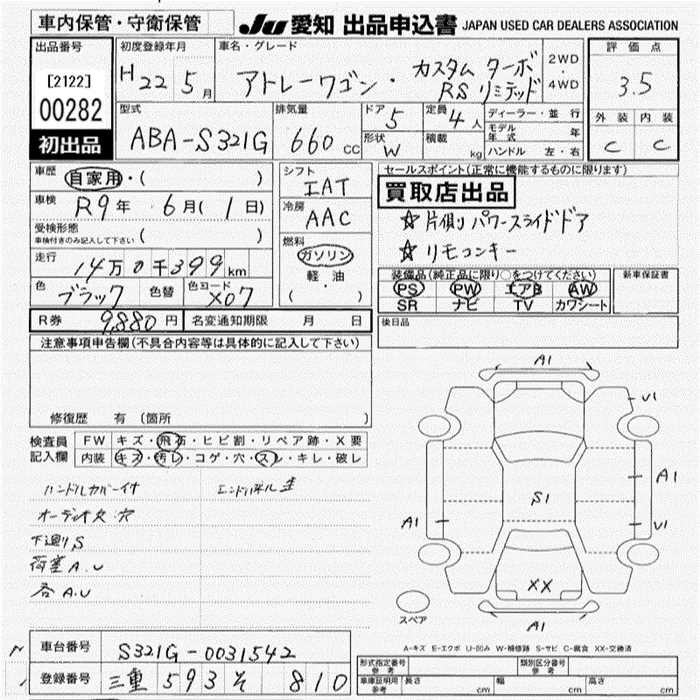 車内保管・守衛保管
Ju 愛知 出品申込書 JAPAN USED CAR DEALERS ASSOCIATION
出品番号
[2122]
00282
初出品
初度登録年月
H22年5月
車名・グレード
アトレーワゴン・カスタム ターボ RS リミテッド
2WD・4WD
評価点
3.5
外装 内装
C C
型式
ABA-S321G
排気量
660 CC
ドア 5
形状 W
定員 4人
積載 kg
ディーラー・並行
モデル年式 年
ハンドル 左・右
車歴 自家用・( )
車検 R9年 6月(1日)
受検形態
車検付きのみ記入して下さい ( )
走行 14万0千399km
色 ブラック 色替 色コード X07
シフト
IAT
冷房
AAC
燃料
ガソリン
軽・油
( )
セールスポイント(正常に機能するものに限ります)
買取店出品
☆片側パワースライドドア
☆リモコンキー
装備品(純正品に限り○をつけてください)
PS PW エアB AW
SR ナビ TV カワシート
新車保証書
R券 9,880円 名変通知期限 月 日
後日品
注意事項申告欄(不具合内容等は具体的に記入して下さい)
修復歴 有(箇所 )
検査員記入欄
FW キズ・飛石・ヒビ割・リペア跡・X要
内装 キズ・汚レ・コゲ・穴・スレ・キレ・破レ
ハンドルカバー付
下廻りS
荷室A.U
各A.U
A1
U1
A1
S1
A1
U1
XX
A1
スペア
A-キズ E-エクボ U-凹み W-補修跡 S-サビ C-腐食 XX-交換済
車台番号 S321G-0031542
登録番号 三重 593 そ 810
形式指定番号 参考
類別区分番号 参考
車庫証明用 参考 長さ cm 幅 cm 高さ cm